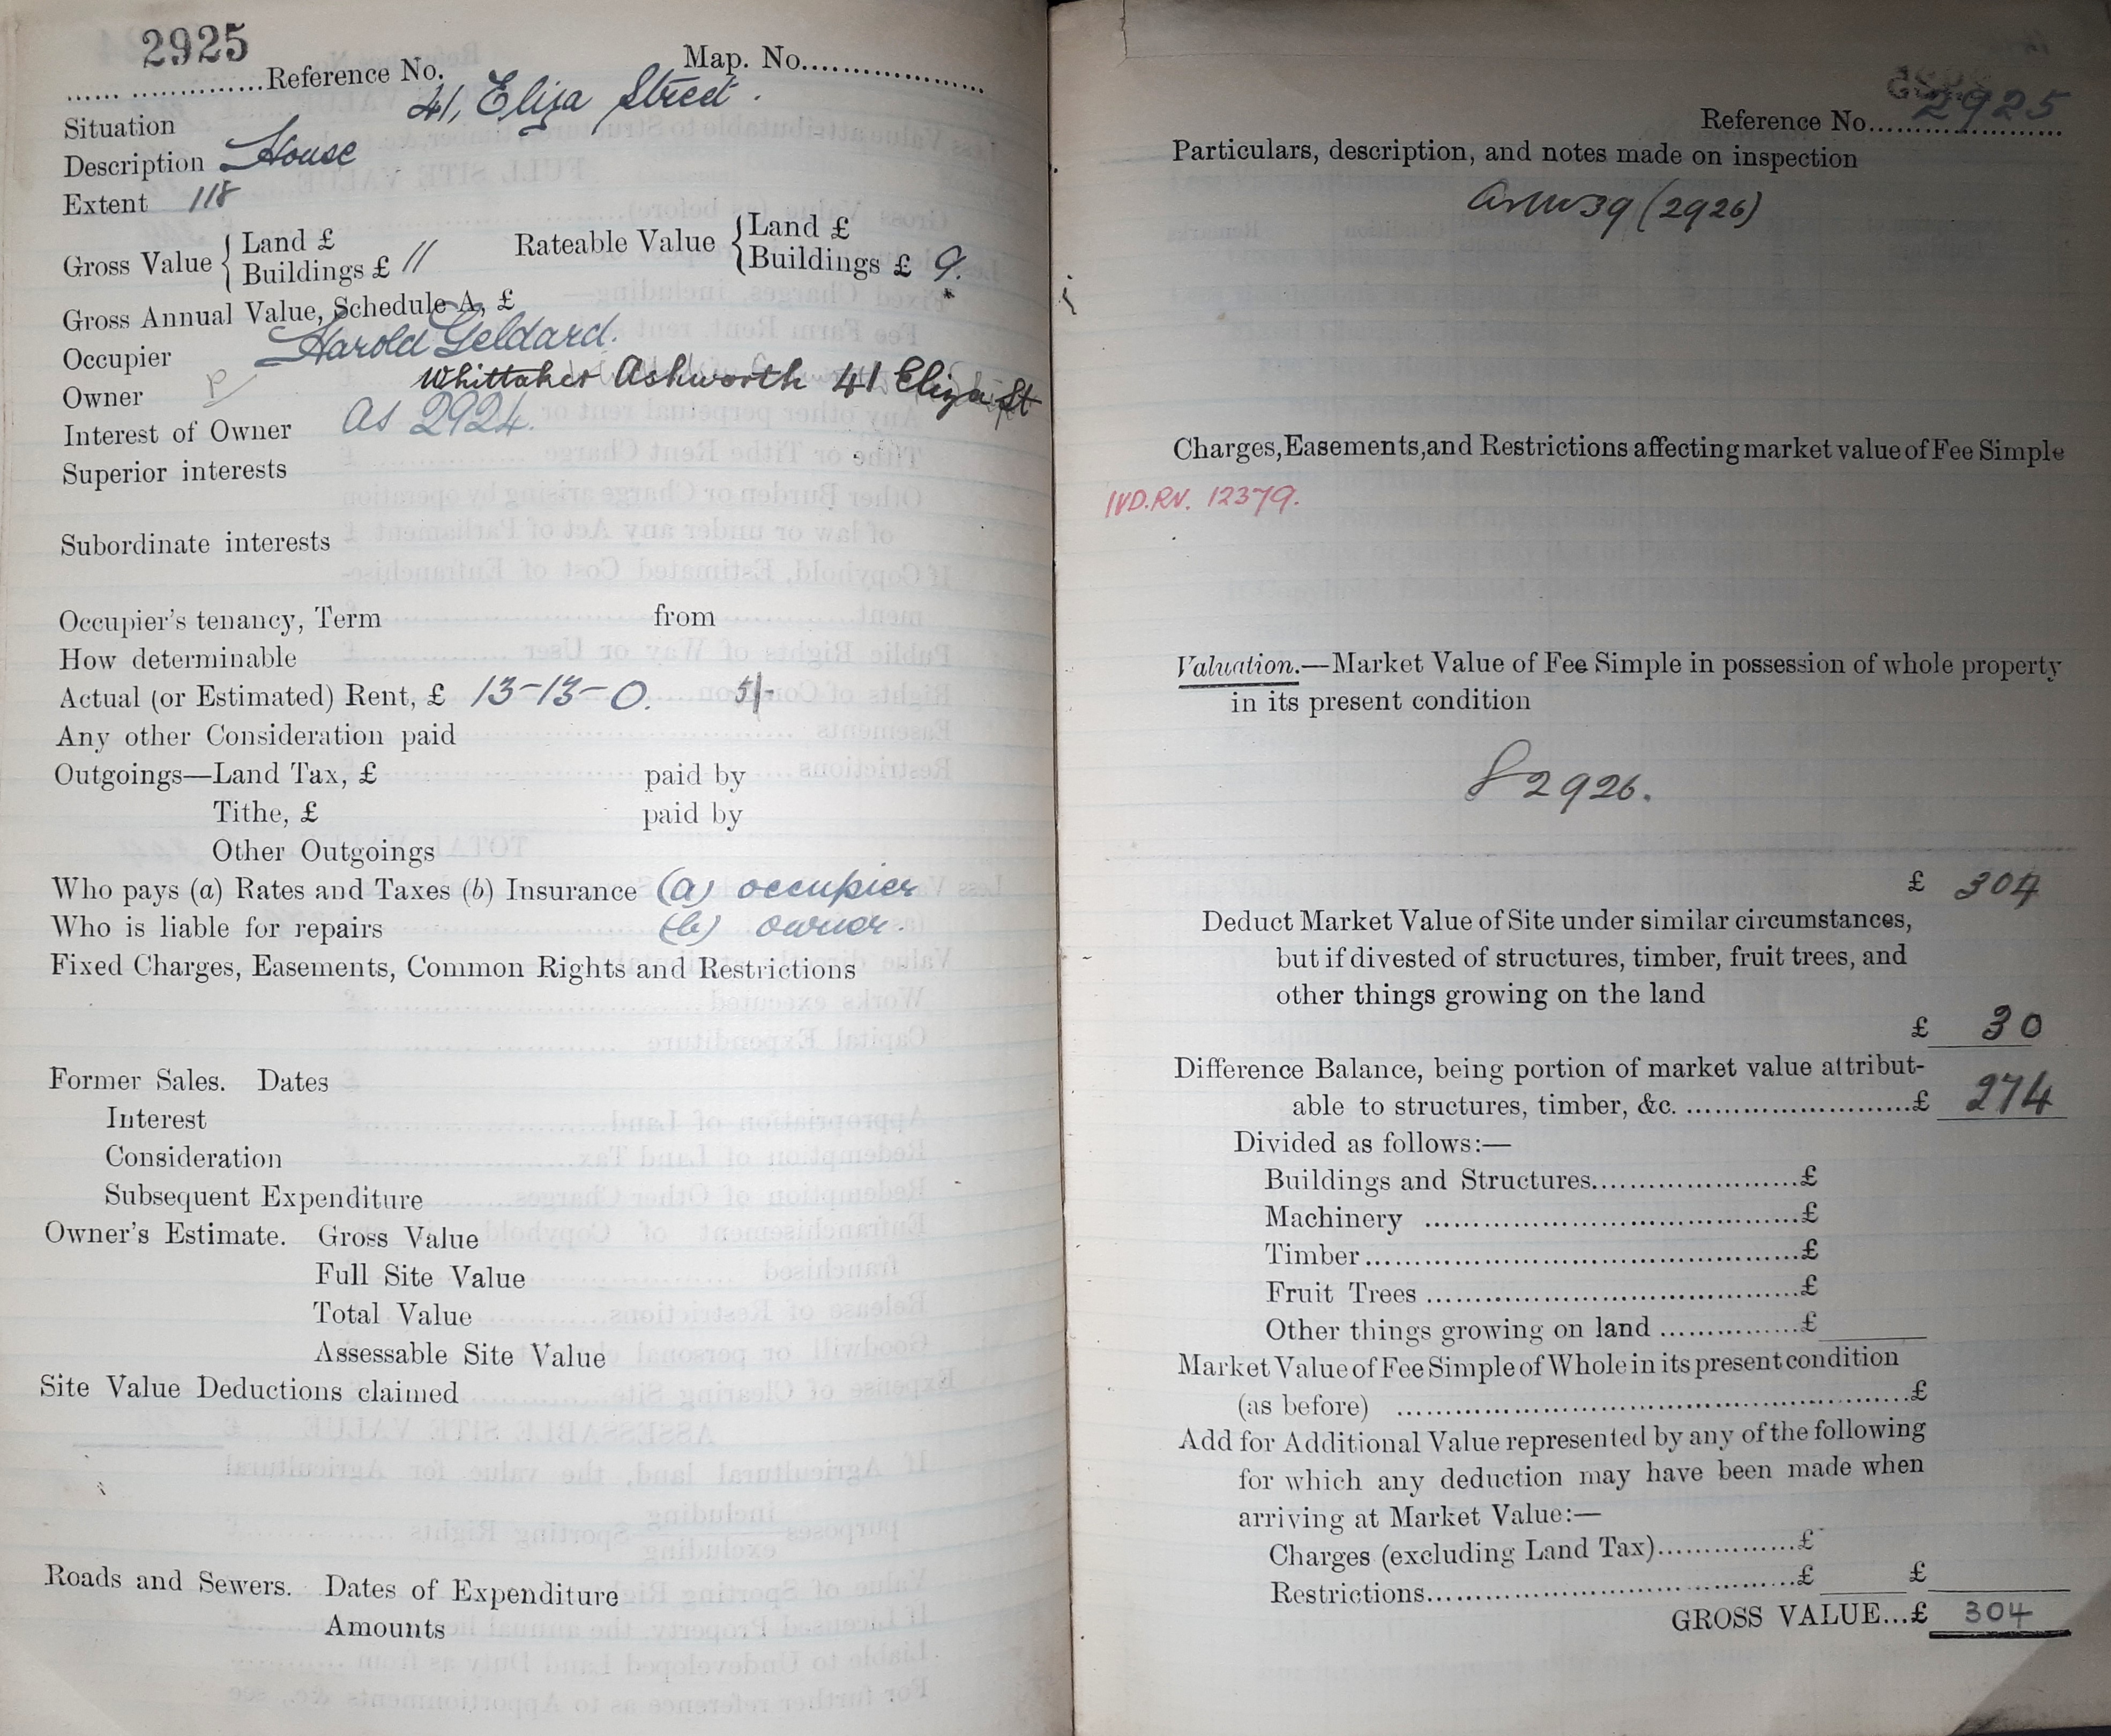 2925
Reference No. Map. No.
Situation 41, Eliza Street.
Description House
Extent 118
Gross Value { Land £ Rateable Value { Land £
Buildings £ 11 Buildings £ 9.
Gross Annual Value, Schedule A, £
Occupier Harold Geldard.
Owner Whittaker Ashworth 41 Eliza St
Interest of Owner as 2924.
Superior interests
Subordinate interests
Occupier's tenancy, Term from
How determinable
Actual (or Estimated) Rent, £ 13-13-0. 5/-
Any other Consideration paid
Outgoings—Land Tax, £ paid by
Tithe, £ paid by
Other Outgoings
Who pays (a) Rates and Taxes (b) Insurance (a) occupier
Who is liable for repairs (b) owner.
Fixed Charges, Easements, Common Rights and Restrictions
Former Sales. Dates
Interest
Consideration
Subsequent Expenditure
Owner's Estimate. Gross Value
Full Site Value
Total Value
Assessable Site Value
Site Value Deductions claimed
Roads and Sewers. Dates of Expenditure
Amounts
Reference No. 2925
Particulars, description, and notes made on inspection
39 (2926)
Charges, Easements, and Restrictions affecting market value of Fee Simple
IVD.RV. 12379.
Valuation.—Market Value of Fee Simple in possession of whole property
in its present condition
2926.
£ 304
Deduct Market Value of Site under similar circumstances,
but if divested of structures, timber, fruit trees, and
other things growing on the land
£ 30
Difference Balance, being portion of market value attribut-
able to structures, timber, &c. £ 274
Divided as follows:—
Buildings and Structures £
Machinery £
Timber £
Fruit Trees £
Other things growing on land £
Market Value of Fee Simple of Whole in its present condition
(as before) £
Add for Additional Value represented by any of the following
for which any deduction may have been made when
arriving at Market Value:—
Charges (excluding Land Tax) £
Restrictions £ £
GROSS VALUE...£ 304